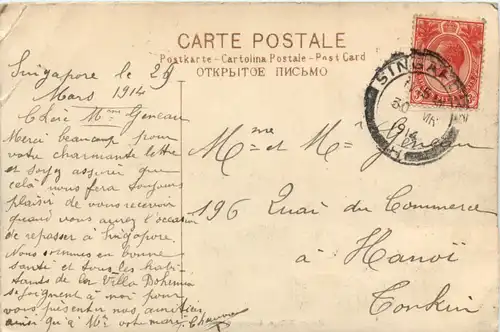 CARTE POSTALE
Postkarte - Cartolina Postale - Post Card
ОТКРЫТОЕ ПИСЬМО
Singapore le 29
Mars 1914
Chère Mme Geneau
Merci beaucoup pour
votre charmante lettre
et soyez assurer que
celà nous fera toujours
plaisir de vous recevoir
quand vous aurez l'occasion
de repasser à Singapore.
Nous sommes en bonne
santé et tous les habi-
tants de la Villa Bohemia
se joignent à moi pour
vous présenter nos amitiés
ainsi qu'à Mr votre mari
Mme et Mr Geneau
196 Quai du Commerce
à Hanoï
Tonkin
SINGAPORE
30 MR
1914